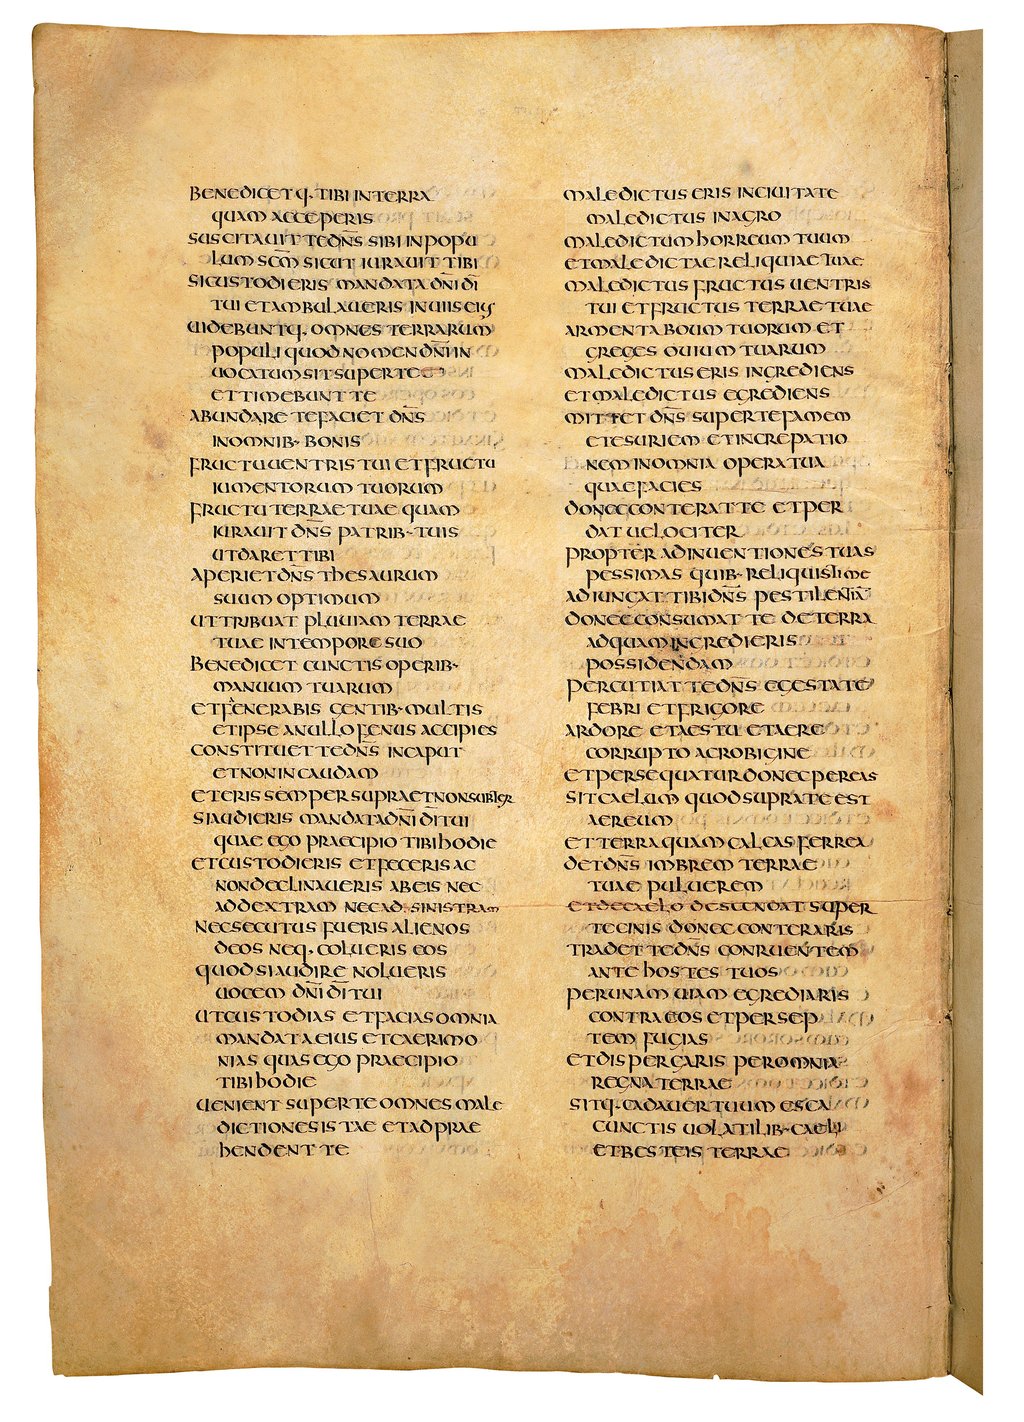 BENEDICETQ· TIBI IN TERRA
QUAM ACCEPERIS
SUSCITAUIT TE DN̄S SIBI IN POPU
LUM SC̄M SICUT IURAUIT TIBI
SI CUSTODIERIS MANDATA DN̄I DĪ
TUI ET AMBULAUERIS IN UIIS EIUS
UIDEBUNTQ· OMNES TERRARUM
POPULI QUOD NOMEN DN̄I IN
UOCATUM SIT SUPER TE
ET TIMEBUNT TE
ABUNDARE TE FACIET DN̄S
IN OMNIB· BONIS
FRUCTU UENTRIS TUI ET FRUCTU
IUMENTORUM TUORUM
FRUCTU TERRAE TUAE QUAM
IURAUIT DN̄S PATRIB· TUIS
UT DARET TIBI
APERIET DN̄S THESAURUM
SUUM OPTIMUM
UT TRIBUAT PLUUIAM TERRAE
TUAE IN TEMPORE SUO
BENEDICET CUNCTIS OPERIB·
MANUUM TUARUM
ET FENERABIS GENTIB· MULTIS
ET IPSE A NULLO FENUS ACCIPIES
CONSTITUET TE DN̄S IN CAPUT
ET NON IN CAUDAM
ET ERIS SEMPER SUPRA ET NON SUBTER
SI AUDIERIS MANDATA DN̄I DĪ TUI
QUAE EGO PRAECIPIO TIBI HODIE
ET CUSTODIERIS ET FECERIS AC
NON DECLINAUERIS AB EIS NEC
AD DEXTRAM NEC AD SINISTRAM
NEC SECUTUS FUERIS ALIENOS
DEOS NEQ· COLUERIS EOS
QUOD SI AUDIRE NOLUERIS
UOCEM DN̄I DĪ TUI
UT CUSTODIAS ET FACIAS OMNIA
MANDATA EIUS ET CAERIMO
NIAS QUAS EGO PRAECIPIO
TIBI HODIE
UENIENT SUPER TE OMNES MALE
DICTIONES ISTAE ET ADPRAE
HENDENT TE
MALEDICTUS ERIS IN CIUITATE
MALEDICTUS IN AGRO
MALEDICTUM HORREUM TUUM
ET MALEDICTAE RELIQUIAE TUAE
MALEDICTUS FRUCTUS UENTRIS
TUI ET FRUCTUS TERRAE TUAE
ARMENTA BOUM TUORUM ET
GREGES OUIUM TUARUM
MALEDICTUS ERIS INGREDIENS
ET MALEDICTUS EGREDIENS
MITTET DN̄S SUPER TE FAMEM
ET ESURIEM ET INCREPATIO
NEM IN OMNIA OPERA TUA
QUAE FACIES
DONEC CONTERAT TE ET PER
DAT UELOCITER
PROPTER ADINUENTIONES TUAS
PESSIMAS QUIB· RELIQUISTI ME
ADIUNGAT TIBI DN̄S PESTILENTIĀ
DONEC CONSUMAT TE DE TERRA
AD QUAM INGREDIERIS
POSSIDENDAM
PERCUTIAT TE DN̄S EGESTATE
FEBRI ET FRIGORE
ARDORE ET AESTU ET AERE
CORRUPTO AC ROBIGINE
ET PERSEQUATUR DONEC PEREAS
SIT CAELUM QUOD SUPRA TE EST
AEREUM
ET TERRA QUAM CALCAS FERREA
DET DN̄S IMBREM TERRAE
TUAE PULUEREM
ET DE CAELO DESCENDAT SUPER
TE CINIS DONEC CONTERARIS
TRADET TE DN̄S CONRUENTEM
ANTE HOSTES TUOS
PER UNAM UIAM EGREDIARIS
CONTRA EOS ET PER SEP
TEM FUGIAS
ET DISPERGARIS PER OMNIA
REGNA TERRAE
SITQ· CADAUER TUUM ESCA
CUNCTIS UOLATILIB· CAELI
ET BESTEIS TERRAE